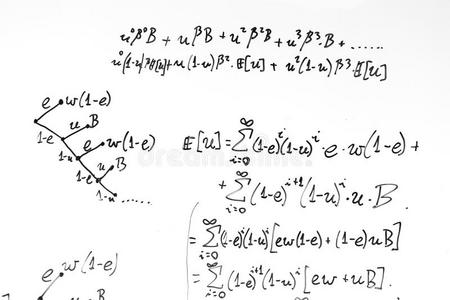 u⁰β⁰B + uβB + u²β²B + u³β³·B + ......
+ u(1-u)β²·𝔼[u] + u²(1-u)β³·𝔼[u]
e w(1-e)
1-e u B
1-u e w(1-e)
1-e u B
1-u ......
𝔼[u] = ∑_{i=0}^{∞} (1-e)^i (1-u)^i · e · w(1-e) +
+ ∑_{i=0}^{∞} (1-e)^{i+1} (1-u)^i · u · B
= ∑_{i=0}^{∞} (1-e)^i (1-u)^i [ew(1-e) + (1-e)uB]
= ∑_{i=0}^{∞} (1-e)^{i+1} (1-u)^i [ew + uB].
e w(1-e)